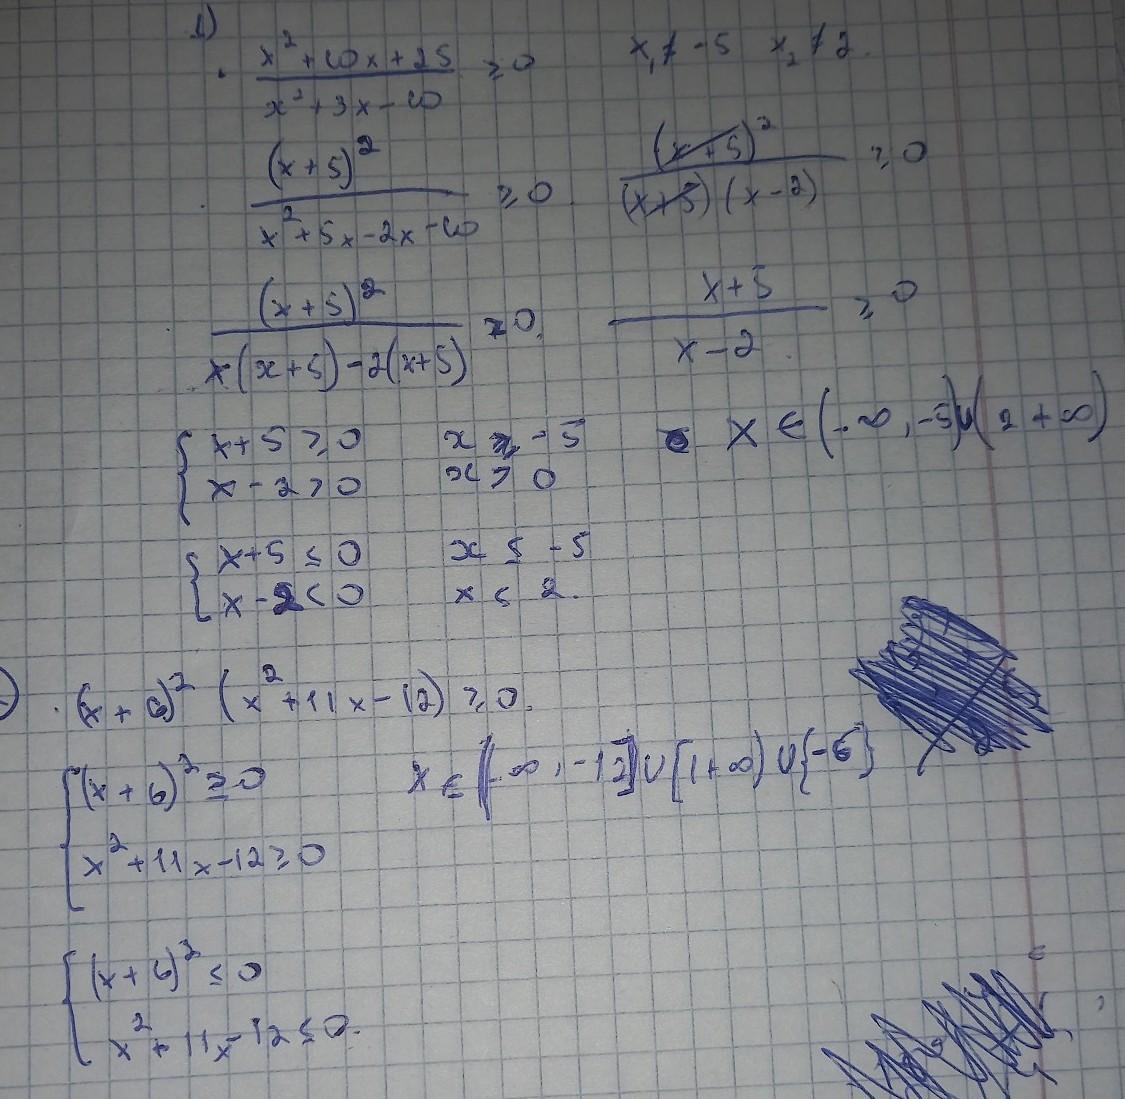 1)
x² + 10x + 25 / x² + 3x - 10 ≥ 0
x₁ ≠ -5 x₂ ≠ 2
(x + 5)² / x² + 5x - 2x - 10 ≥ 0
(x + 5)² / (x + 5)(x - 2) ≥ 0
(x + 5)² / x(x + 5) - 2(x + 5) ≥ 0
x + 5 / x - 2 ≥ 0
{ x + 5 ≥ 0 x ≥ -5
x - 2 > 0 x > 0
x ∈ (-∞, -5) ∪ (2 + ∞)
{ x + 5 ≤ 0 x ≤ -5
x - 2 < 0 x < 2.
(x + 6)² (x² + 11x - 12) ≥ 0.
{ (x + 6)² ≥ 0
x² + 11x - 12 ≥ 0
x ∈ (-∞, -12] ∪ [1 + ∞) ∪ {-6}
{ (x + 6)² ≤ 0
x² + 11x - 12 ≤ 0.